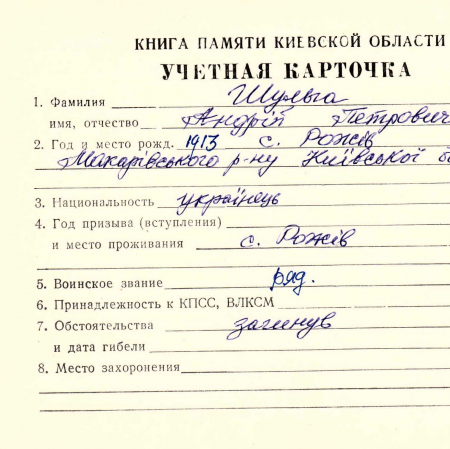 КНИГА ПАМЯТИ КИЕВСКОЙ ОБЛАСТИ
УЧЕТНАЯ КАРТОЧКА
1. Фамилия Шульга
имя, отчество Андрій Петрович
2. Год и место рожд. 1913 с. Рожів
Макарівського р-ну Київської
3. Национальность українець
4. Год призыва (вступления)
и место проживания с. Рожів
5. Воинское звание ряд.
6. Принадлежность к КПСС, ВЛКСМ
7. Обстоятельства загинув
и дата гибели
8. Место захоронения